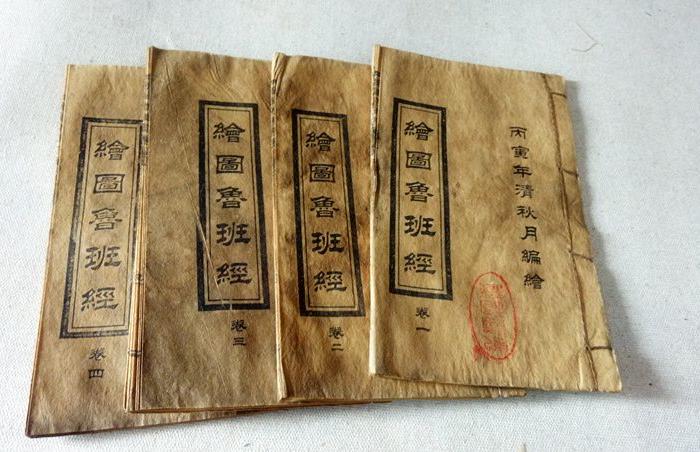 繪圖魯班經
卷四
繪圖魯班經
卷三
繪圖魯班經
卷二
繪圖魯班經
卷一
丙寅年清秋月編繪